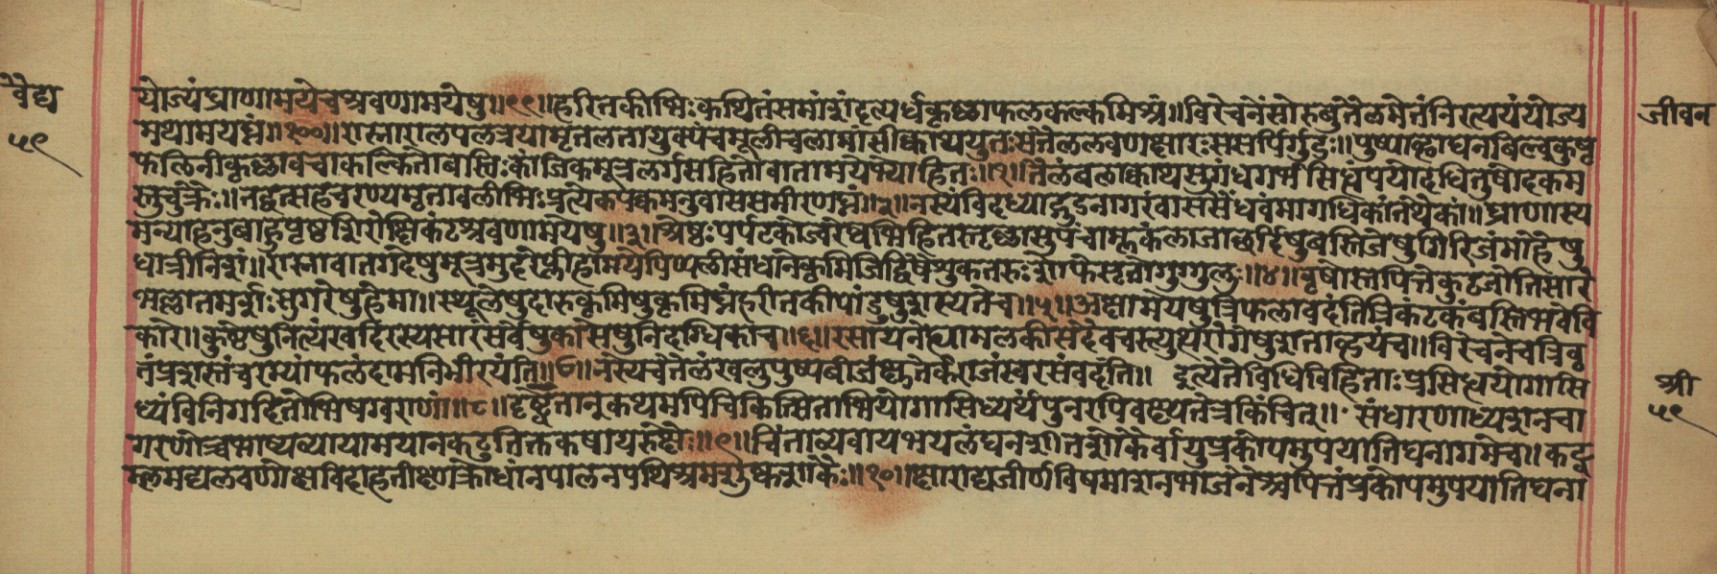 वैद्य
५९
जीवन
योज्यंघ्राणामयेचश्रवणामयेषु॥९९॥हरितकीभिःकथितंसमांशंदृत्यर्धकृष्णाफलकल्कमिश्रं॥विरेचनंसोरुबुतैलमेतंनिरत्ययंयोज्य
मथामयघ्नं॥१००॥रास्नारालपलत्रयामृतलतायुक्पंचमूलीचलामांसीक्वाथयुतःसतैललवणक्षारःससर्पिर्गुडः॥पुष्पाव्हाघनबिल्वकुष्ठ
फलिनीकृष्णावचाकल्कितोबस्तिःकांजिकमूत्रलर्गसहितोवातामयेभ्योहितः॥१॥तिलंबलाक्वाथसुगंधगर्भंसिद्धंपयोदधितुषोदकम
स्तुचुक्रैः॥तद्वत्सहचरण्यमृतावलीभिःप्रत्येकपक्कमनुवासिसमीरणघ्नं॥२॥नस्यंविदध्याद्गुडनागरंवाससैंधवंमागधिकांतथैकां॥घ्राणास्य
मन्याहनुबाहुपृष्ठशिरोक्षिकंठश्रवणामयेषु॥३॥श्रेष्ठःपर्पटकोज्वरेष्वभिहितस्तृष्णासुपंचाम्लकंलाजाछर्दिषुबस्तिजेषुगिरिजंमोहेषु
धात्रीनिशा॥रास्नावातगदेषुमूत्रमुदरेप्लीहामयेपिप्पलीसंधानेकृमिजिद्विषेशुकतरुःशोफेस्तथागुग्गुलुः॥४॥वृषोस्रपित्तेकुटजोतिसारे
भल्लातमर्शःसुगरेषुहेमा॥स्थूलेषुदारुकृमिषुकृमिघ्नंहरीतकीपांडुषुशस्यतेच॥५॥अक्षामयेषुत्रिफलावदंतित्रिकंटकंबस्तिभवेवि
कारे॥कुष्ठेषुनित्यंखदिरस्यसारंसर्वेषुकासेषुनिदग्धिकाच॥६॥रसायनेत्वामलकीसदैवचस्त्युत्थरोगेषुशताव्हयंच॥विरेचनेचत्रिवृ
तंप्रशस्तंवम्यांफलंदामनिभीरयंति॥७॥नस्येचतैलंखलुपुष्पबीजंक्षतेर्कराजंस्वरसंवदंति॥ इत्येतेविधिविहिताःप्रसिद्धयोगासि
ध्यंविनिगदितोभिषग्वराणां॥८॥दृष्ट्वैतानुकथमपिचिकित्सितानियोगासिध्यर्थंपुनरपिवक्ष्यतेत्रकिंचित्॥ संधारणाध्यशनजा
गरणोच्चभाष्यव्यायामयानकटुतिक्तकषायरुक्षैः॥९॥चिंताव्यवायभयलंघनशीतशोकैर्वायुप्रकोपमुपयातिघनागमेच॥कट्व
म्लमद्यलवणोक्ष्णविदाहतीक्ष्णक्रोधांनपालनपथिश्रमशुष्कशाकैः॥१०॥क्षाराद्यजीर्णविषमाशनभोजनैश्चपित्तंप्रकोपमुपयातिघना
श्री
५९